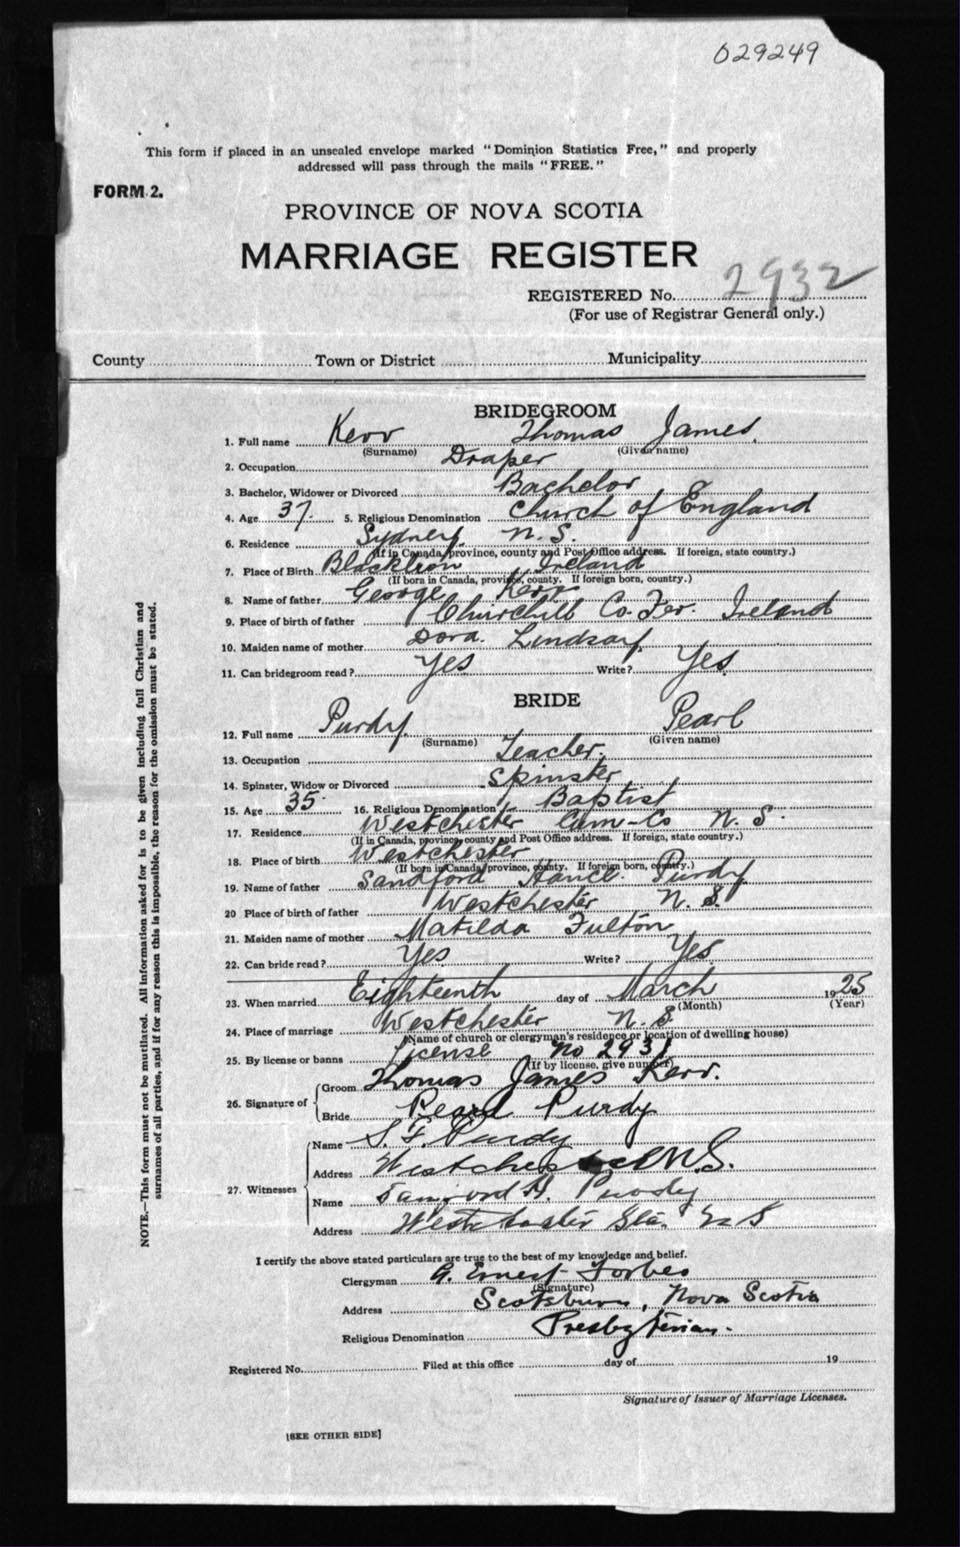 029249
This form if placed in an unsealed envelope marked "Dominion Statistics Free," and properly
addressed will pass through the mails "FREE."
FORM 2.
PROVINCE OF NOVA SCOTIA
MARRIAGE REGISTER
REGISTERED No. 2932
(For use of Registrar General only.)
County Town or District Municipality
BRIDEGROOM
1. Full name Kerr Thomas James
(Surname) (Given name)
2. Occupation Draper
3. Bachelor, Widower or Divorced Bachelor
4. Age 37. 5. Religious Denomination Church of England
6. Residence Sydney N.S.
(If in Canada, province, county and Post Office address. If foreign, state country.)
7. Place of Birth Ireland
(If born in Canada, province, county. If foreign born, country.)
8. Name of father George Kerr
9. Place of birth of father Churchill Co. Fer. Ireland
10. Maiden name of mother Dora Lindsay
11. Can bridegroom read? Yes Write? Yes
BRIDE
12. Full name Purdy Pearl
(Surname) (Given name)
13. Occupation Teacher
14. Spinster, Widow or Divorced Spinster
15. Age 35 16. Religious Denomination Baptist
17. Residence Westchester Cum-Co N.S.
(If in Canada, province, county and Post Office address. If foreign, state country.)
18. Place of birth Westchester
(If born in Canada, province, county. If foreign born, country.)
19. Name of father Sandford Hance Purdy
20 Place of birth of father Westchester N.S.
21. Maiden name of mother Matilda Fulton
22. Can bride read? Yes Write? Yes
23. When married Eighteenth day of March 1925
(Month) (Year)
24. Place of marriage Westchester N.S
(Name of church or clergyman's residence or location of dwelling house)
25. By license or banns License No 2931
(If by license, give number)
26. Signature of Groom Thomas James Kerr.
Bride Pearl Purdy
27. Witnesses
Name S. F. Purdy
Address Westchester N.S.
Name Sanford H. Purdy
Address Westchester Sta. N S
I certify the above stated particulars are true to the best of my knowledge and belief.
Clergyman G. Ernest Forbes
(Signature)
Address Scotsburn, Nova Scotia
Religious Denomination Presbyterian.
Registered No. Filed at this office day of 19
Signature of Issuer of Marriage Licenses.
[SEE OTHER SIDE]
NOTE.—This form must not be mutilated. All information asked for is to be given including full Christian and
surnames of all parties, and if for any reason this is impossible, the reason for the omission must be stated.